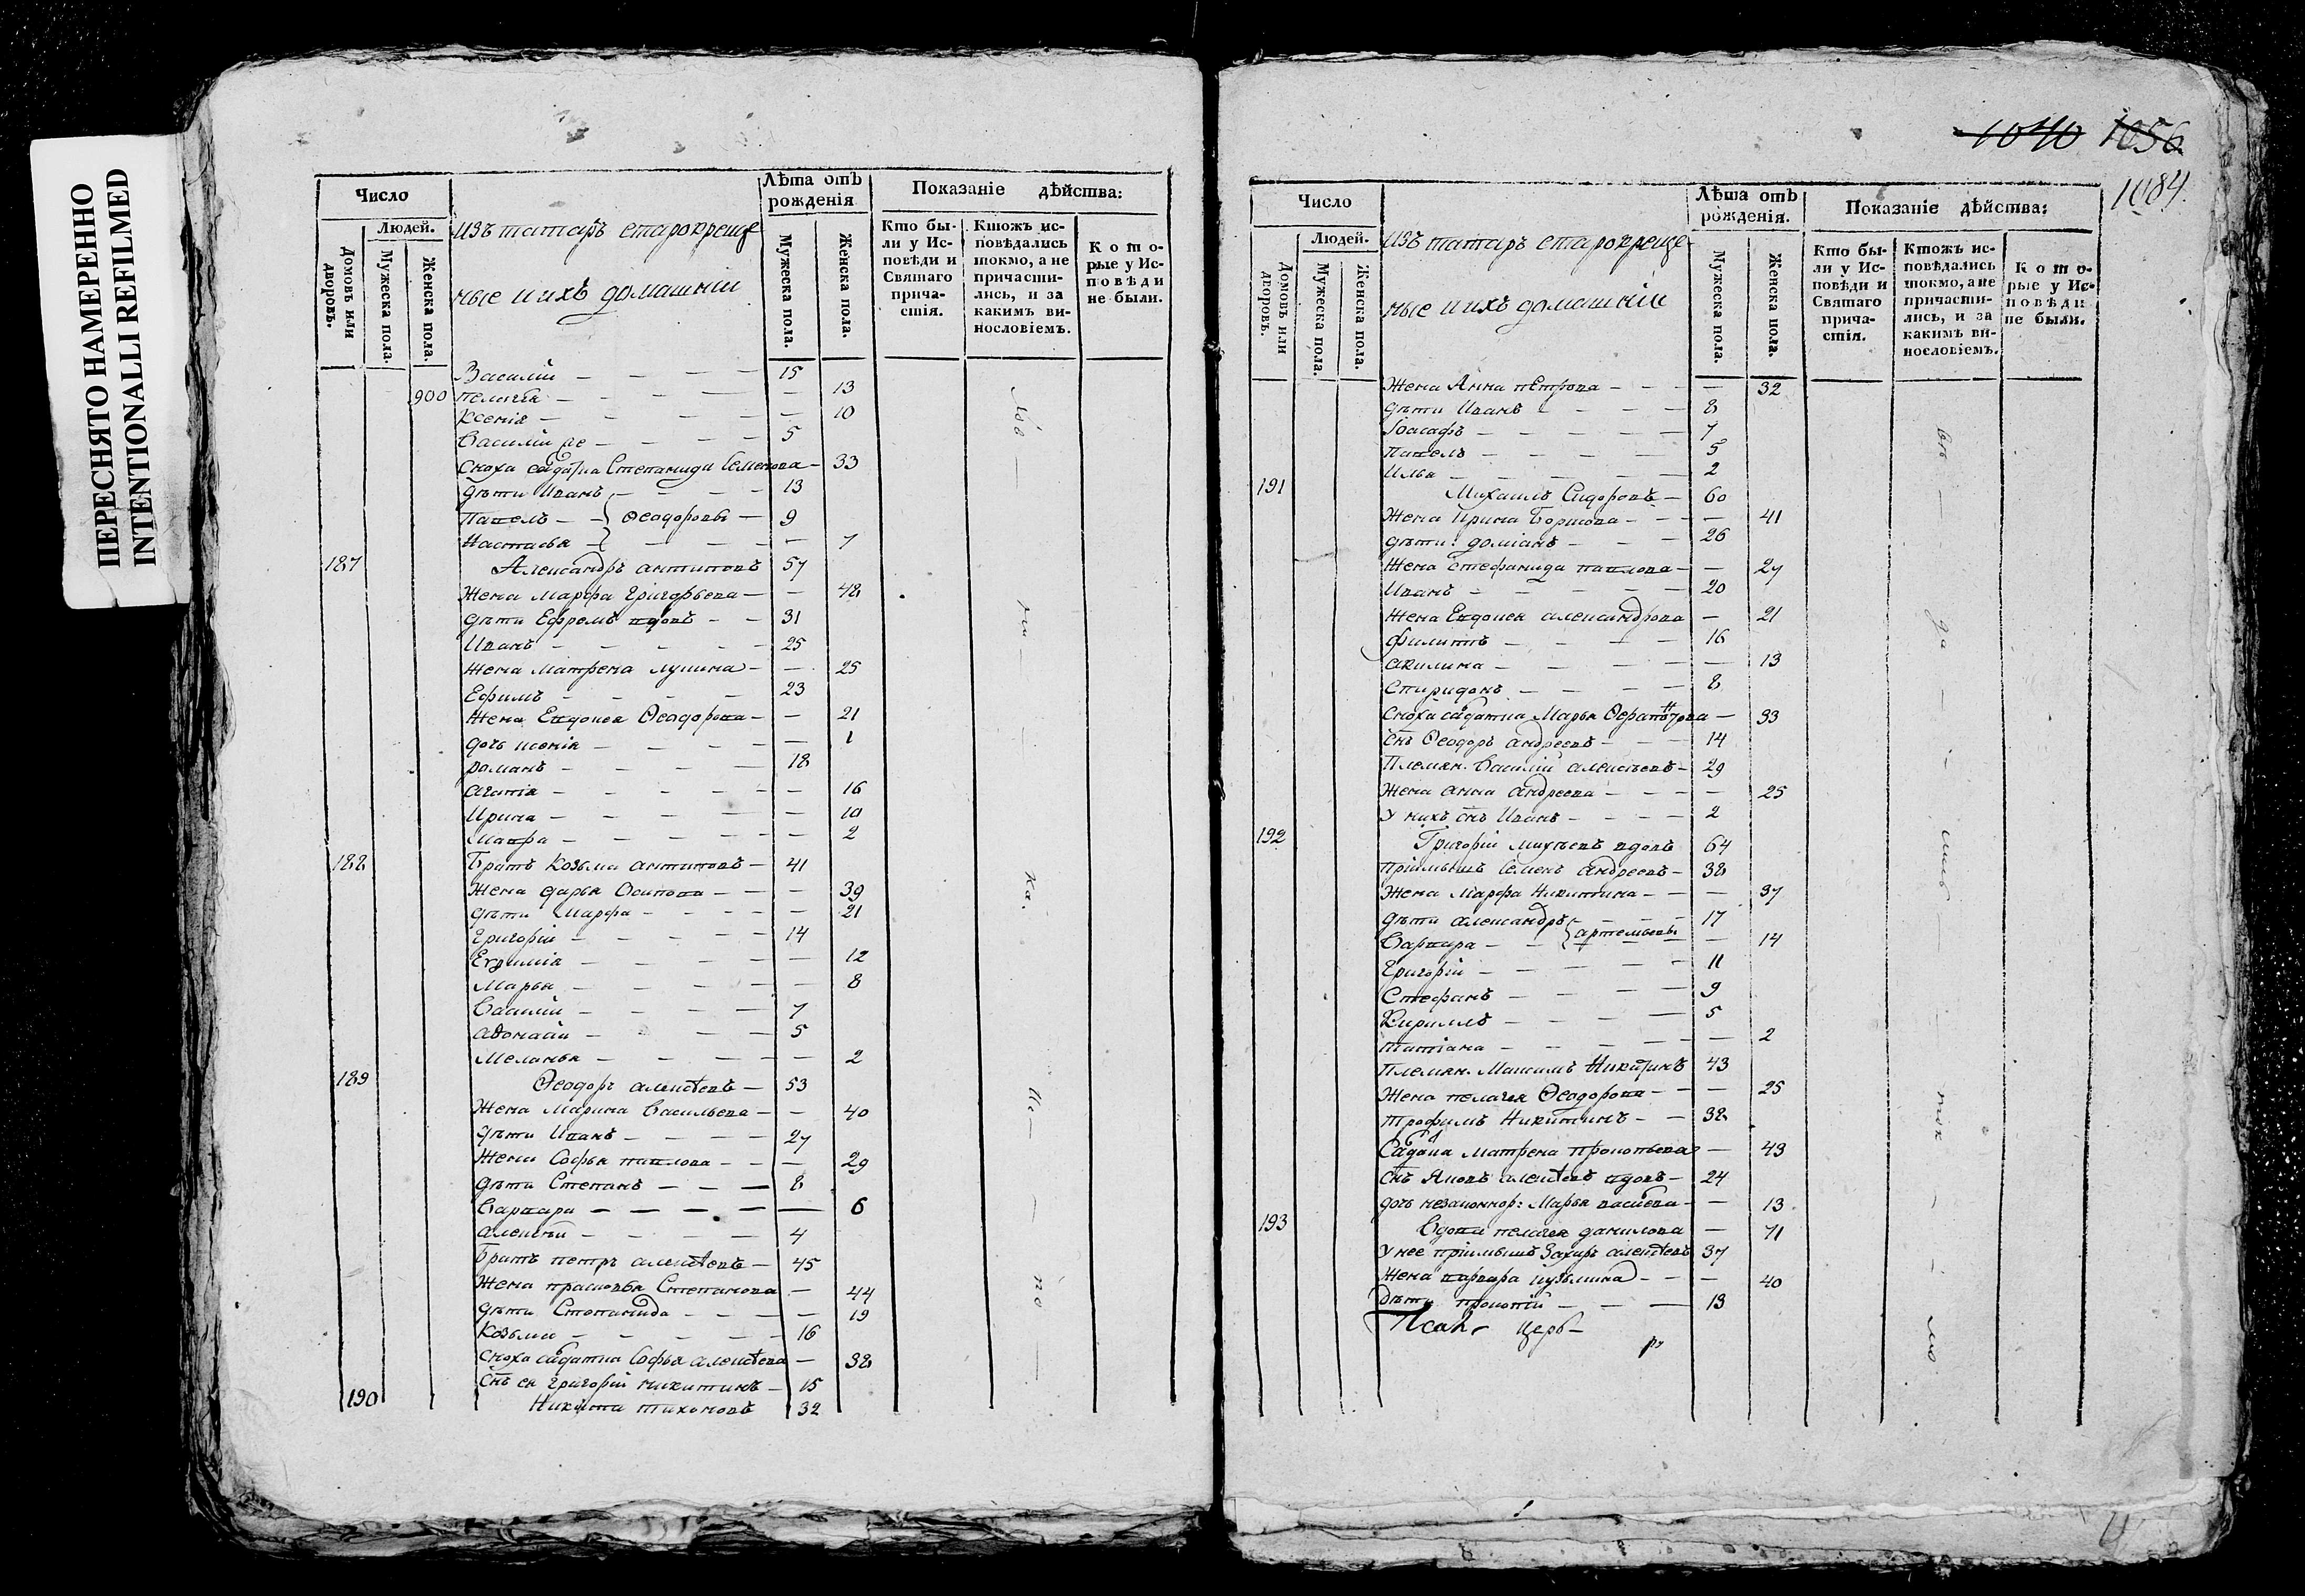 ПЕРЕСНЯТО НАМЕРЕННО
INTENTIONALLI REFILMED
Число
Людей.
Домовъ или дворовъ.
Мужеска пола.
Женска пола.
изъ татаръ старокреще
ные и ихъ домашнiи
Лѣта отъ рожденiя
Мужеска пола.
Женска пола.
Показанiе дѣйства:
Кто бы-
ли у Ис-
повѣди и
Святаго
прича-
стiя.
Ктожъ ис-
повѣдались
токмо, а не
причасти-
лись, и за
какимъ ви-
нословiемъ.
Кото-
рые у Ис-
повѣди
не были.
Василiй — 15
900 Пелагея — 13
Ксенiя — 10
Василiй же — 5
Сноха солдатка Степанида Семенова — 33
дѣти Иванъ — 13
Павелъ — Ѳеодоровы — 9
Настасья — 7
187 Александръ антиповъ 57
Жена Марфа Григорьева — 48
дѣти Ефремъ вдовъ — 31
Иванъ — 25
Жена Матрена лукина — 25
Ефимъ — 23
Жена Евдокея Ѳеодорова — 21
дочь ксенiя — 1
романъ — 18
агапiя — 16
Ирина — 10
Мавра — 2
188 Братъ Козьма антиповъ — 41
Жена дарья Осипова — 39
дѣти Марфа — 21
Григорiй — 14
Евфимiя — 12
Марья — 8
Василiй — 7
аѳонасiй — 5
Меланья — 2
189 Ѳеодоръ алексѣевъ — 53
Жена Марина Васильева — 40
дѣти Иванъ — 27
Жена Софья павлова — 29
дѣти Степанъ — 8
Варвара — 6
алексѣй — 4
Братъ петръ алексѣевъ — 45
Жена прасковья Степанова — 44
дѣти Степанида — 19
Козьма — 16
сноха солдатка Софья алексѣева — 38
Снъ ея григорiй никитинъ — 15
190 Никита тихоновъ 32
1040 1056
1084.
Число
Людей.
Домовъ или дворовъ.
Мужеска пола.
Женска пола.
изъ татаръ старокреще
ные и ихъ домашнiи
Лѣта отъ рожденiя.
Мужеска пола.
Женска пола.
Показанiе дѣйства:
Кто бы-
ли у Ис-
повѣди и
Святаго
прича-
стiя.
Ктожъ ис-
повѣдались
токмо, а не
причасти-
лись, и за
какимъ ви-
нословiемъ.
Кото-
рые у Ис-
повѣди
не были.
Жена Анна пЕтрова — 32
дѣти Иванъ — 8
Iоасафъ — 7
Павелъ — 5
Илья — 2
191 Михаилъ Сидоровъ — 60
Жена Ирина Борисова — 41
дѣти: домiанъ — 26
Жена стефанида павлова — 27
Иванъ — 20
Жена Евдокея александрова — 21
филиппъ — 16
акилина — 13
Спиридонъ — 8
Сноха солдатка Марья — 33
снъ Ѳеодоръ андреевъ — 14
Племян. Василiй алексѣевъ — 29
Жена анна андреева — 25
У нихъ снъ Иванъ — 2
192 Григорiй михѣевъ вдовъ 64
прiимышъ Семенъ андреевъ — 38
Жена Марфа Никитина — 37
дѣти александръ — 17
Варвара — артемьевы — 14
Григорiй — 11
Стефанъ — 9
Кириллъ — 5
татiана — 2
Племян. Максимъ Никитинъ 43
Жена пелагея Ѳеодорова — 25
трофимъ Никитинъ — 38
Матрена прокопьева — 43
снъ Яковъ алексѣевъ вдовъ — 24
дочь незаконнор: Марья — 13
193 Вдова пелагея данилова — 71
У нее прiимышъ Захаръ алексѣевъ 37
Жена варвара кузьмина — 40
дѣти прокопiй — 13